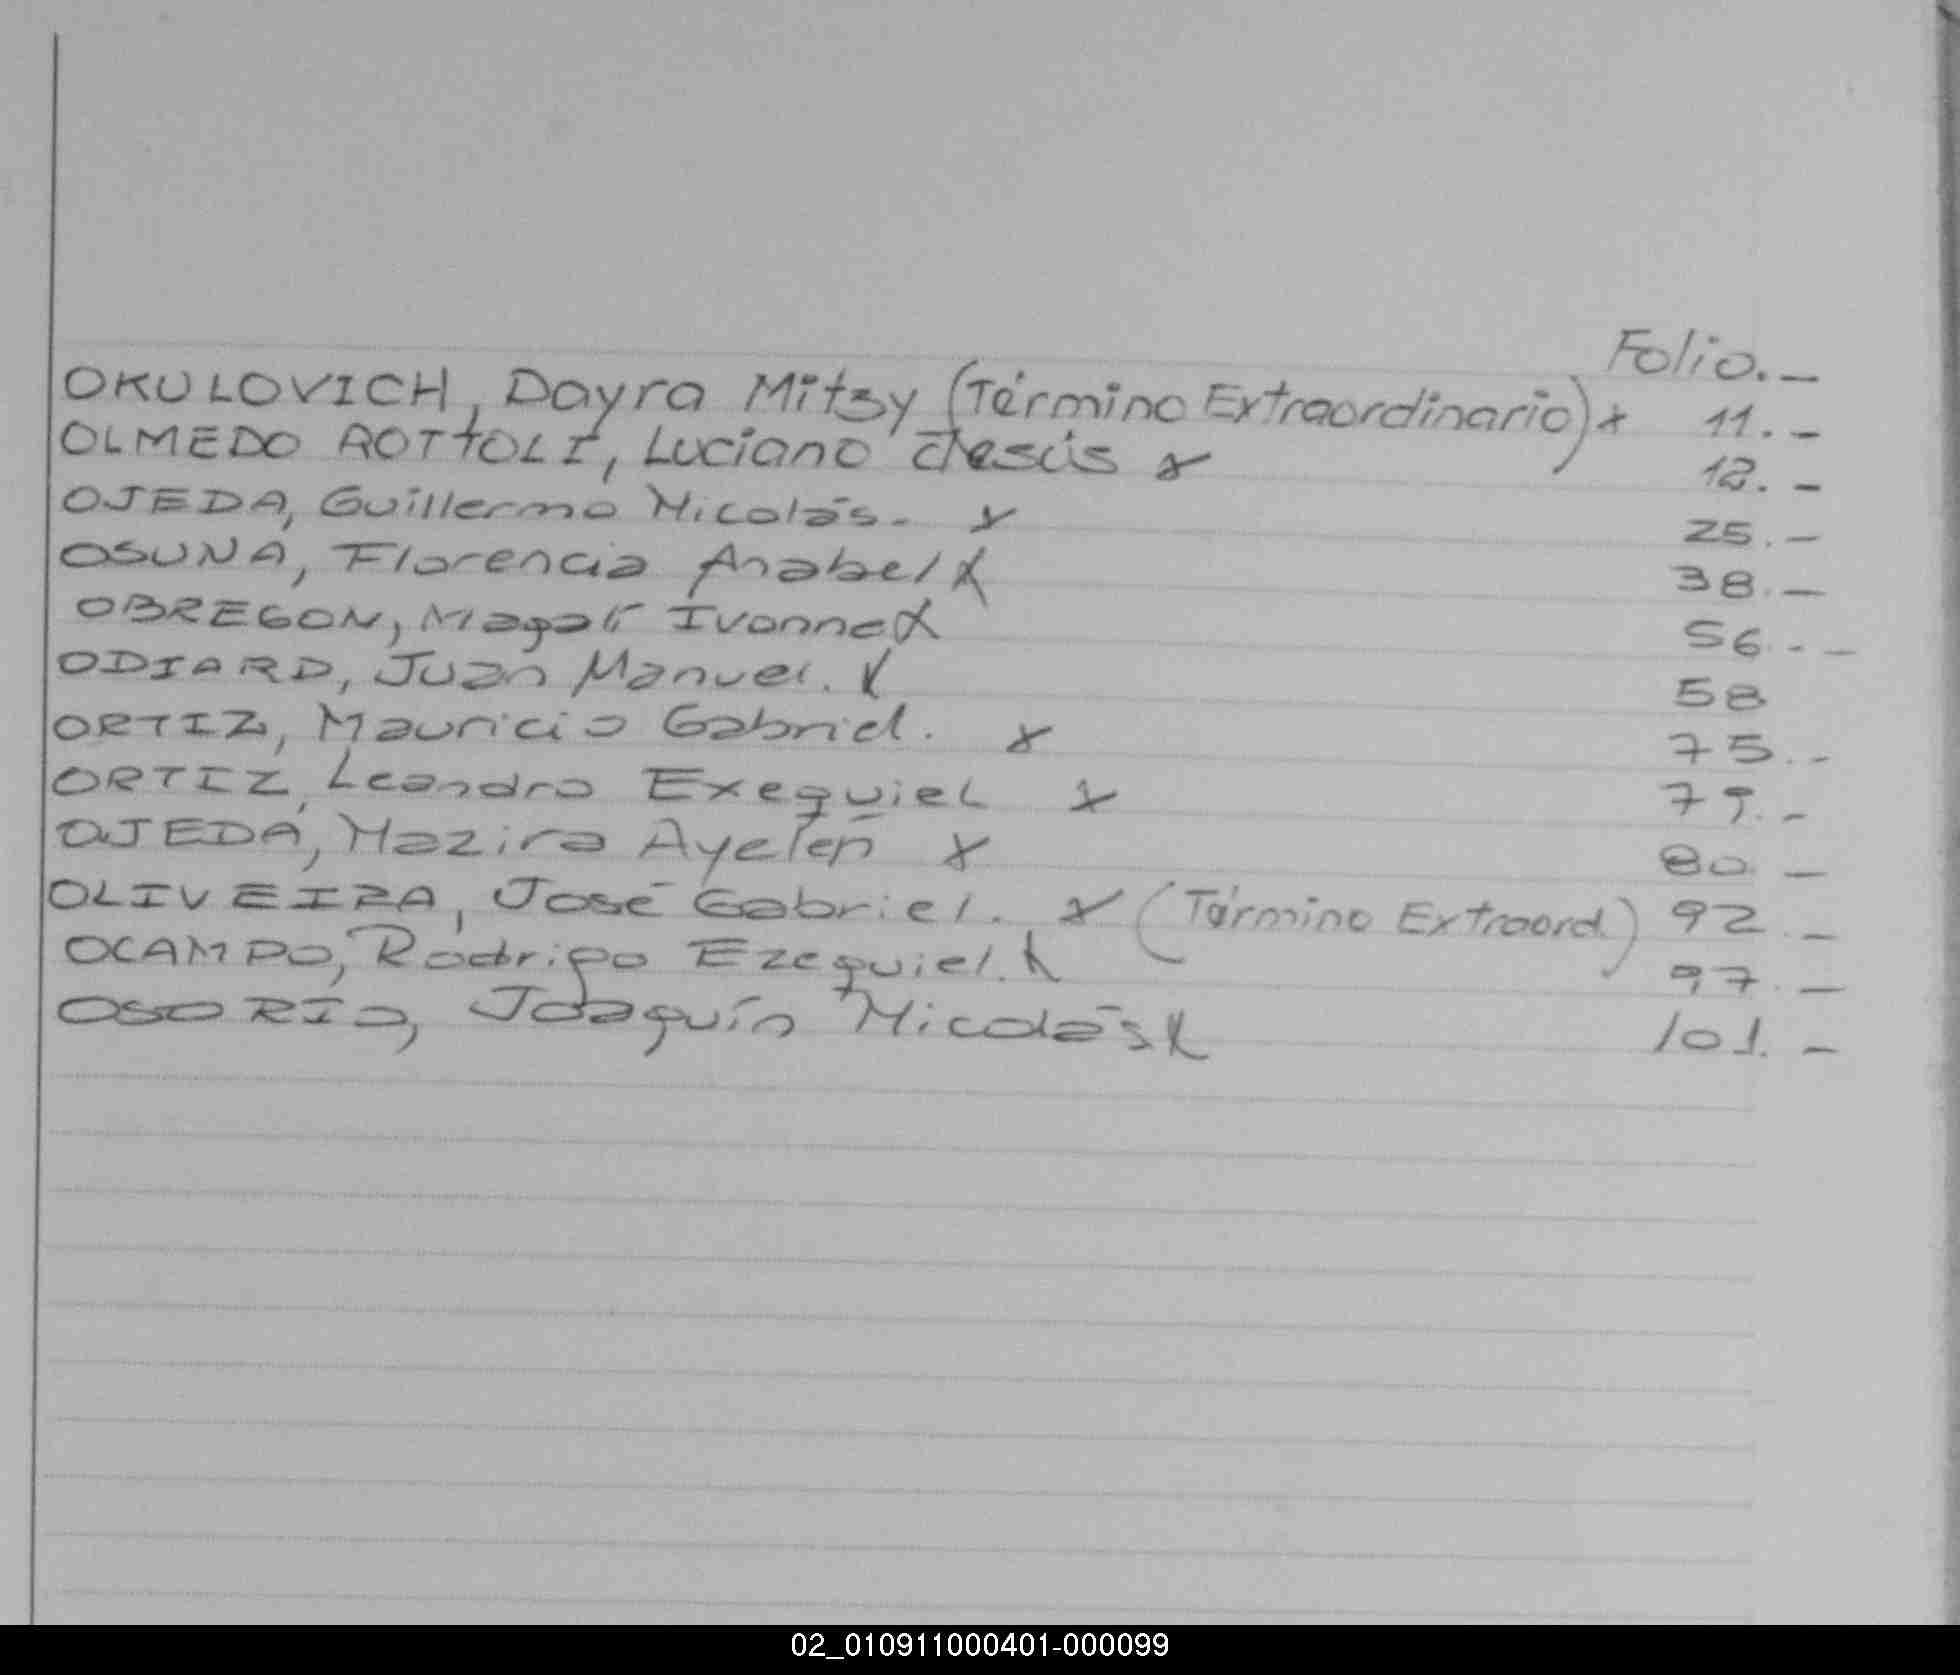 Folio.-
OKULOVICH, Dayra Mitzy (Término Extraordinario) x 11.-
OLMEDO ROTTOLI, Luciano Jesús x 12.-
OJEDA, Guillermo Nicolás- x 25.-
OSUNA, Florencia Anabel x 38.-
OBREGON, Magalí Ivonne x 56.--
ODIARD, Juan Manuel. x 58
ORTIZ, Mauricio Gabriel. x 75.-
ORTIZ, Leandro Exequiel x 79.-
OJEDA, Nazira Ayelén x 80 -
OLIVEIRA, José Gabriel. x (Término Extraord.) 92.-
OCAMPO, Rodrigo Ezequiel. x 97.-
OSORIO, Joaquín Nicolás x 101.-
02_010911000401-000099